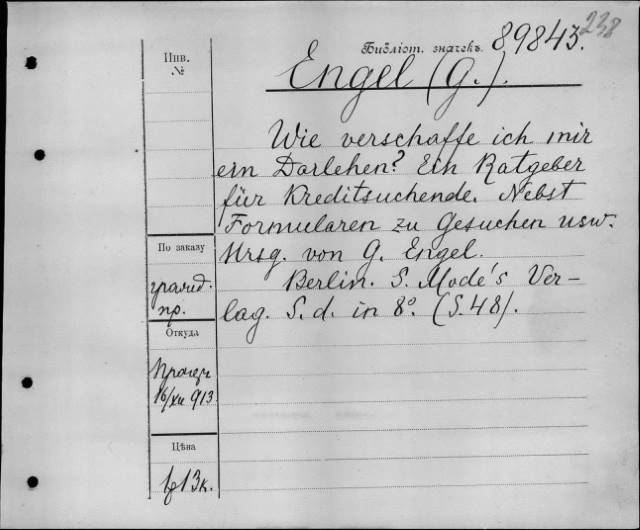 238
Библіот. значекъ 89843.
Инв.
№
Engel (G.).
Wie verschaffe ich mir
ein Darlehen? Ein Ratgeber
für Kreditsuchende. Nebst
Formularen zu Gesuchen usw.
Hrsg. von G. Engel.
Berlin. S. Mode's Ver-
lag. S. d. in 8º. (S. 48).
По заказу
пр.
Откуда
16/XII 913
Цѣна
13к.